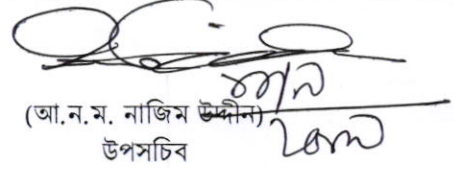 (আ.ন.ম. নাজিম উদ্দীন)
উপসচিব